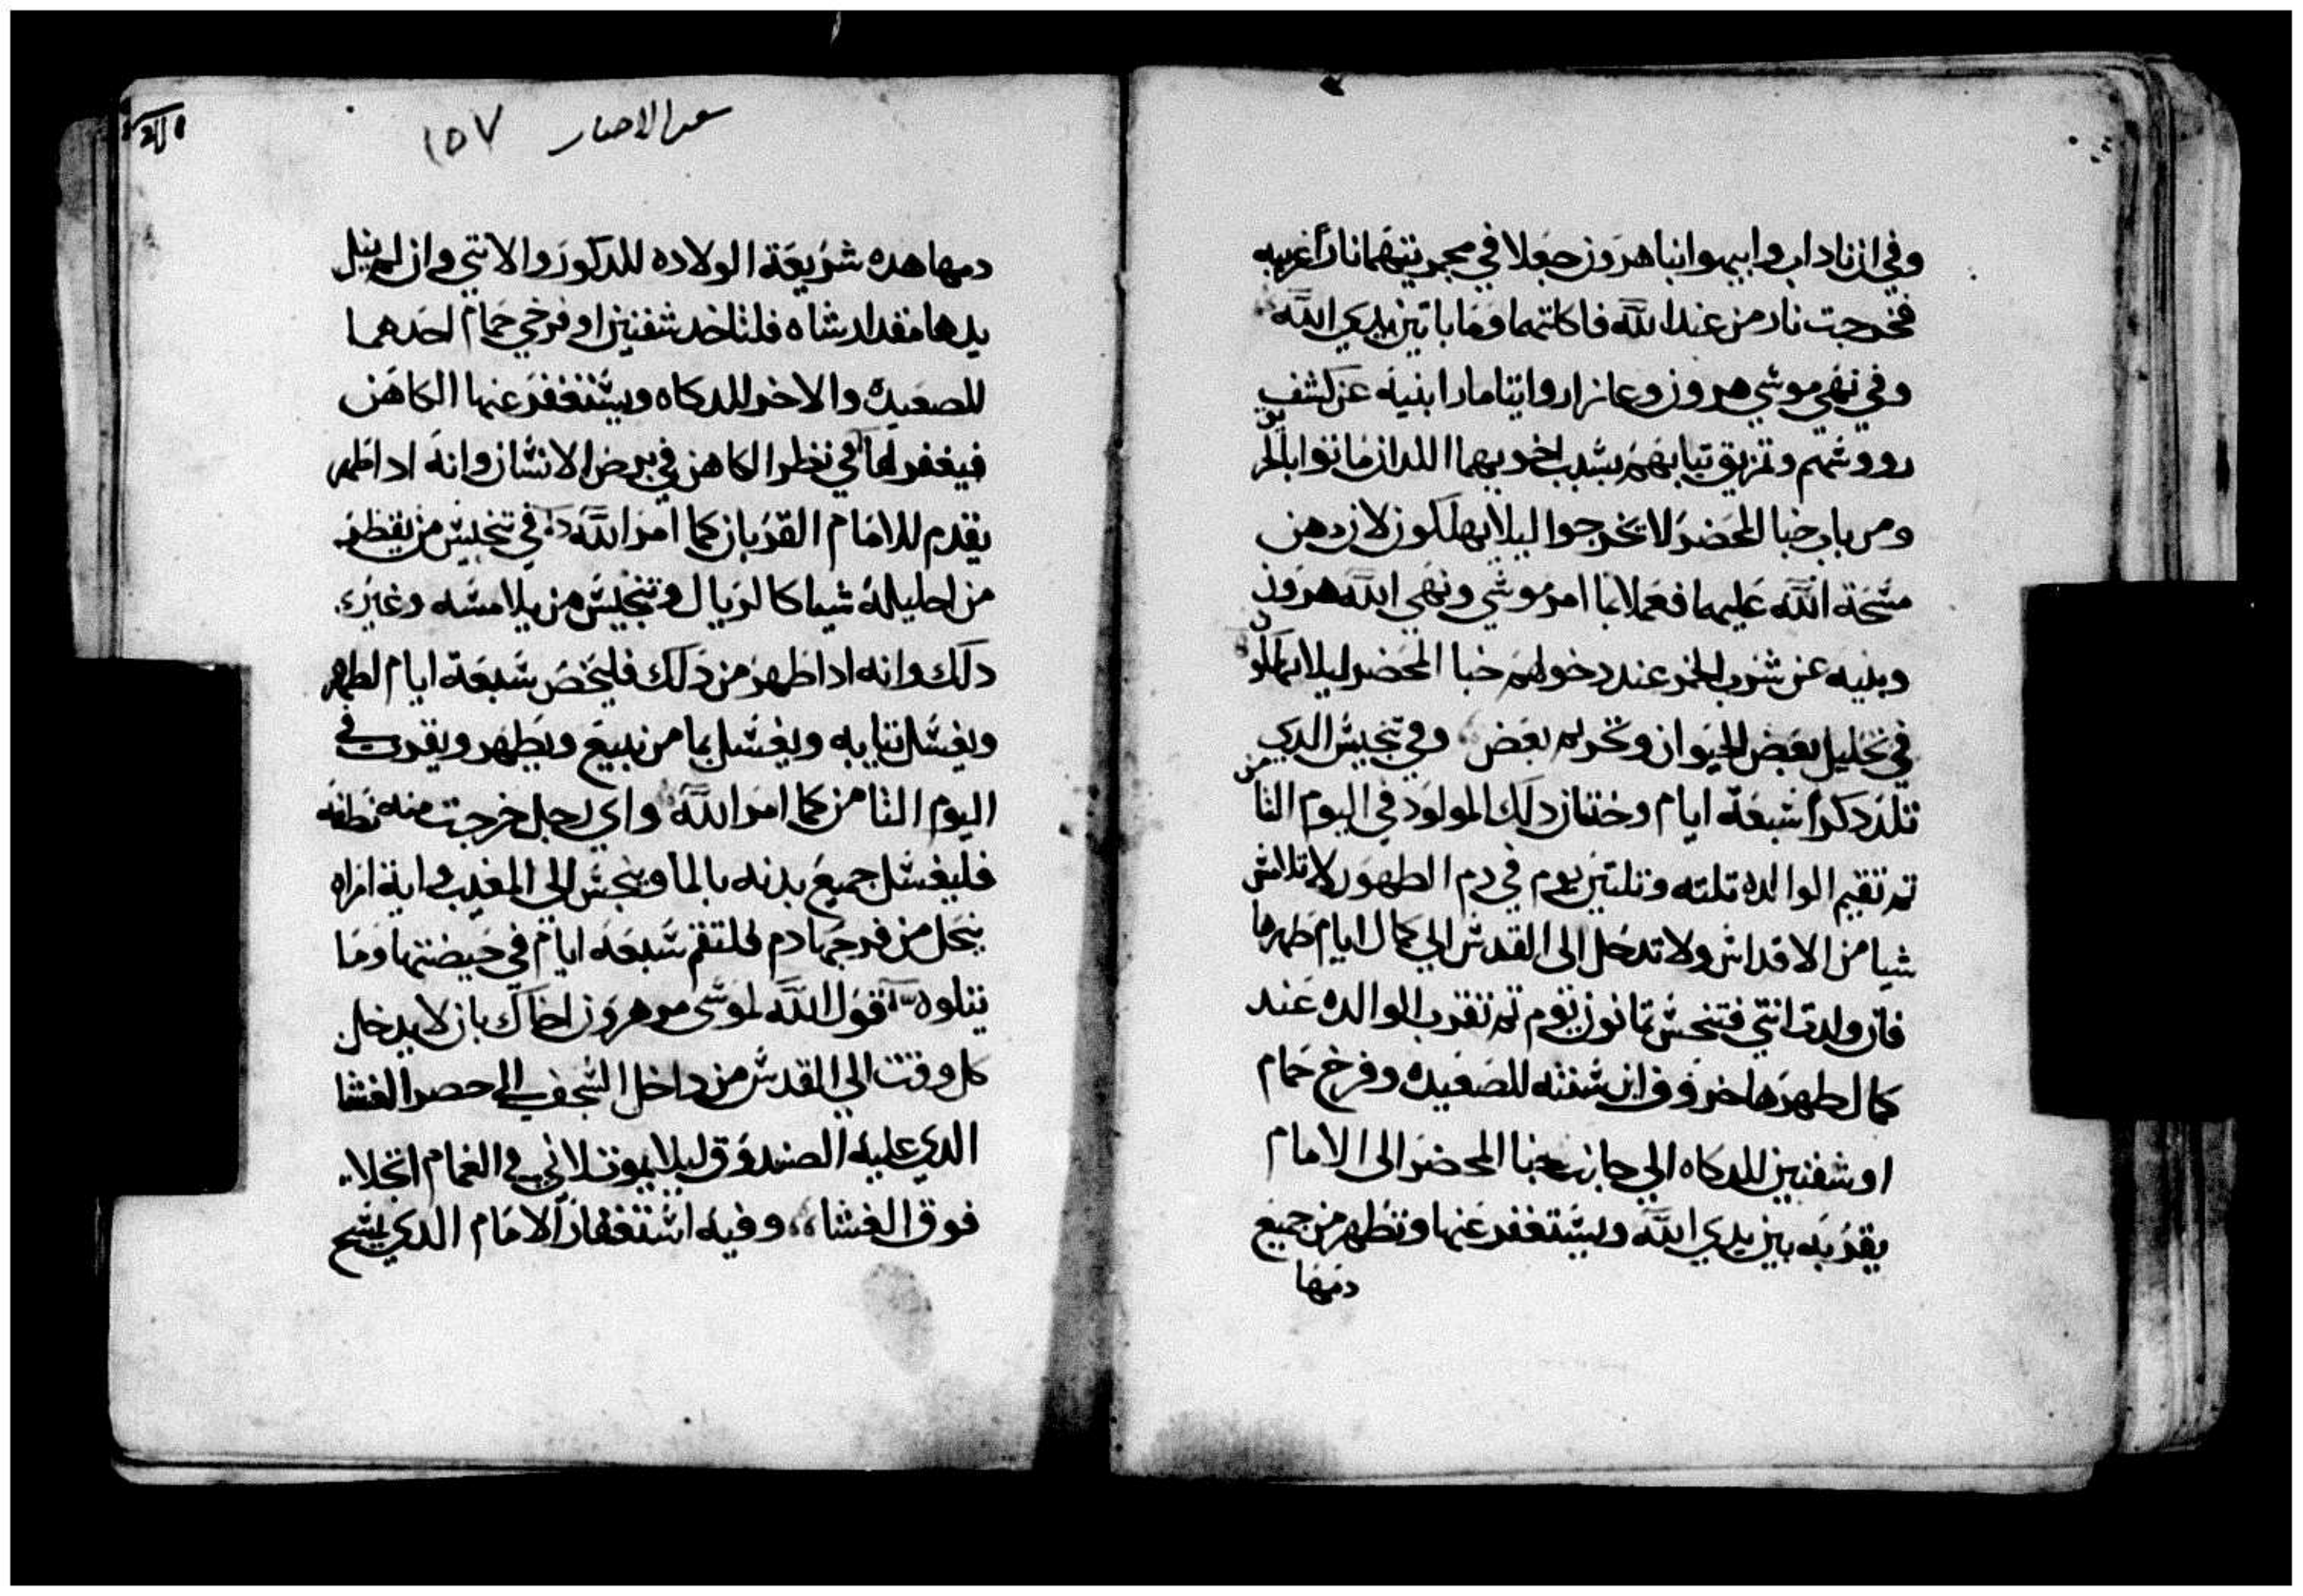 وفي ان ناداب وابيهوا ابنا هرون جعلا في مجمرتيهما نارا غريبه
فخرجت نار من عند الله فاكلتهما وماباتين يدي الله
وفي نهي موشي هرون وعازار وايتامار ابنيه عن كشف
رووشهم وتمزيق تيابهم بشبب اخويهما اللدان ماتوا بالحريق
ومن باب خبا المحضر لا يخرجوا ليلا يهلكون لان دهن
مشحة الله عليهما ففعلا بما امر موشي ونهي الله هرون
وبنيه عن شرب الخمر عند دخولهم خبا المحضر ليلا يهلكون
في تحليل بعض الحيوان وتحريم بعض وفي تنجيش الدي
تلد دكرا شبعة ايام وختان دلك المولود في اليوم التامن
تم تقيم الوالده تلته وتلتين يوم في دم الطهور لا تلامش
شيا من الاقداش ولا تدخل الى القدش الي كمال ايام طهرها
فان ولدت انتي فتنجش تمانون يوم تم تقرب الوالده عند
كمال طهرها خروف ابن شنته للصعيده وفرخ حمام
او شفنين للدكاه الي جانب خبا المحضر الى الامام
يقربه بين يدي الله ويشتغفر عنها وتطهر من جميع
دمها
سفر الاحبار ١٥٧
دمها هده شريعة الولاده للدكور والانتي وان لم ينل
يدها مقدار شاه فلتاخد شفنين او فرخي حمام احدهما
للصعيده والاخر للدكاه ويشتغفر عنها الكاهن
فيغفر لها في نظر الكاهن في برص الانشان وانه ادا طهر
يقدم للامام القربان كما امر الله في تنجيش من يقطر
من احليله شيا كالريال وتنجيش من يلامشه وغير
دلك وانه ادا طهر من دلك فليحص شبعة ايام لطهره
ويغشل تيابه ويغشل بما من نبيع ويطهر ويقرب في
اليوم التامن كما امر الله واي رجل خرجت منه نطفه
فليغشل جميع بدنه بالما وينجش الى المغيب واية امراه
ينحل من فرجها دم فلتقم شبعة ايام في حيضتها وما
يتلوه قول الله لموشى مر هرون اخاك بان لا يدخل
كل وقت الي القدش من داخل الشجف الى حصرا الغشا
الدي عليه الصندوق ليلا يموت لاني في الغمام اتجلا
فوق الغشا وفيه اشتغفار الامام الدي يمشح